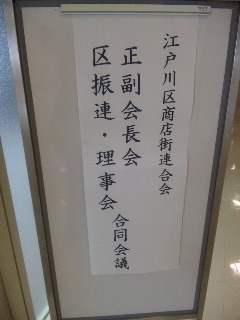 江戸川区商店街連合会
正副会長会
区振連・理事会
合同会議